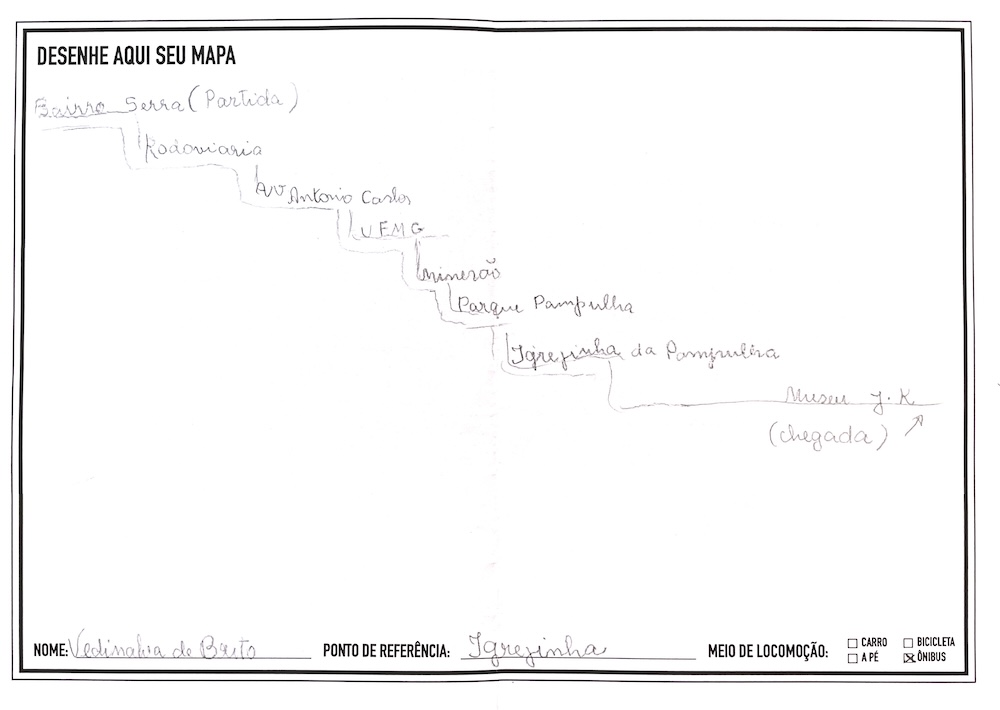 DESENHE AQUI SEU MAPA
Bairro Serra (Partida)
Rodoviaria
Av Antonio Carlos
UFMG
mineirão
Parque Pampulha
Igrejinha da Pampulha
Museu J.K
(chegada)
NOME: de Brito PONTO DE REFERÊNCIA: Igrejinha MEIO DE LOCOMOÇÃO: CARRO BICICLETA
A PÉ ÔNIBUS